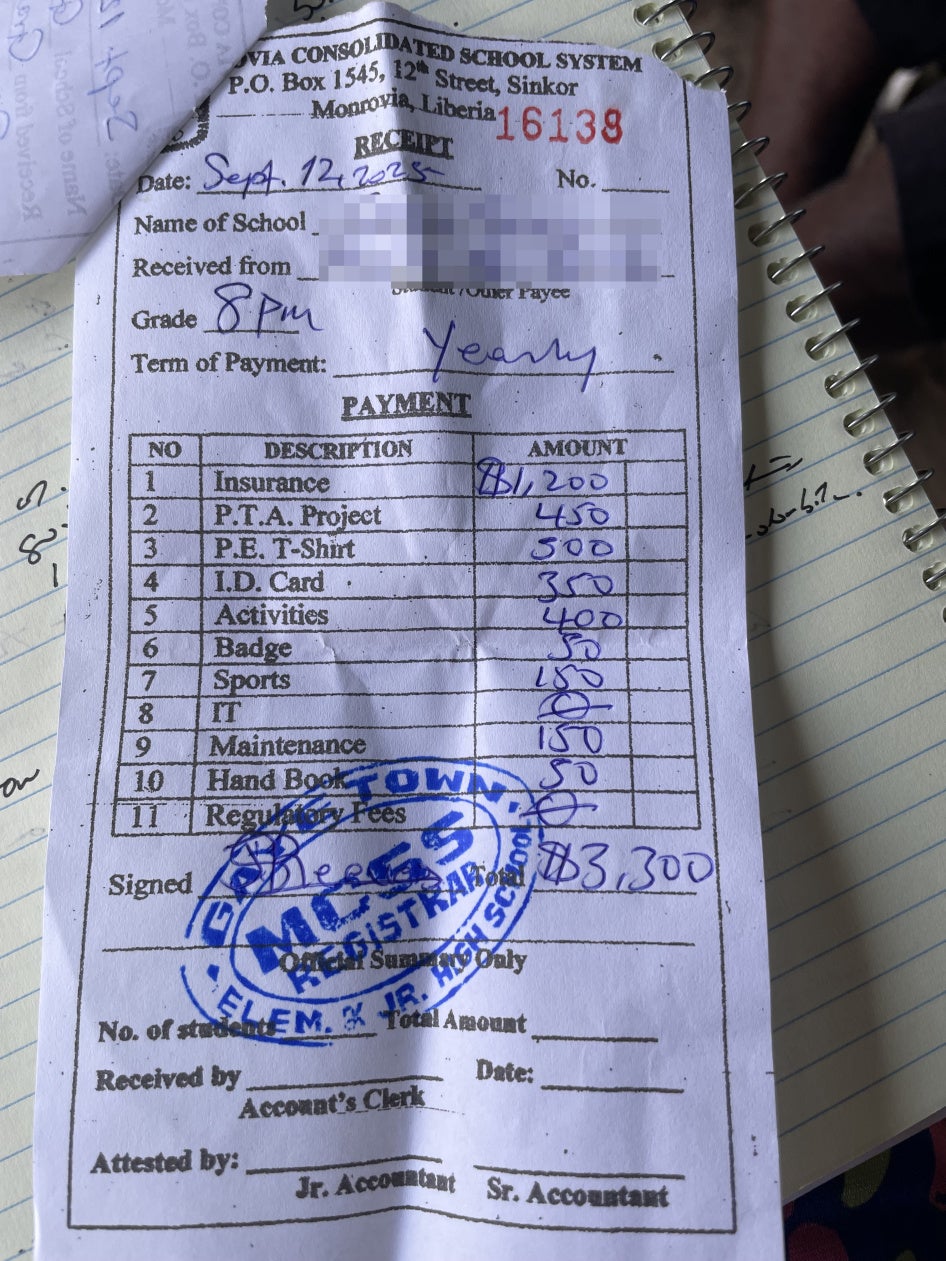 OVIA CONSOLIDATED SCHOOL SYSTEM
P.O. Box 1545, 12th Street, Sinkor
Monrovia, Liberia
16138
RECEIPT
Date: Sept. 12, 2025 No.
Name of School
Received from
/Other Payee
Grade 8 pm
Term of Payment: Yearly
PAYMENT
NO DESCRIPTION AMOUNT
1 Insurance $1,200
2 P.T.A. Project 450
3 P.E. T-Shirt 500
4 I.D. Card 350
5 Activities 400
6 Badge 50
7 Sports 150
8 IT 0
9 Maintenance 150
10 Hand Book 50
11 Regulatory Fees 0
Signed Total $3,300
TOWN,
MCSS
REGISTRAR
ELEM. & JR. HIGH SCHOOL
Official Summary Only
No. of students Total Amount
Received by Date:
Account's Clerk
Attested by:
Jr. Accountant Sr. Accountant